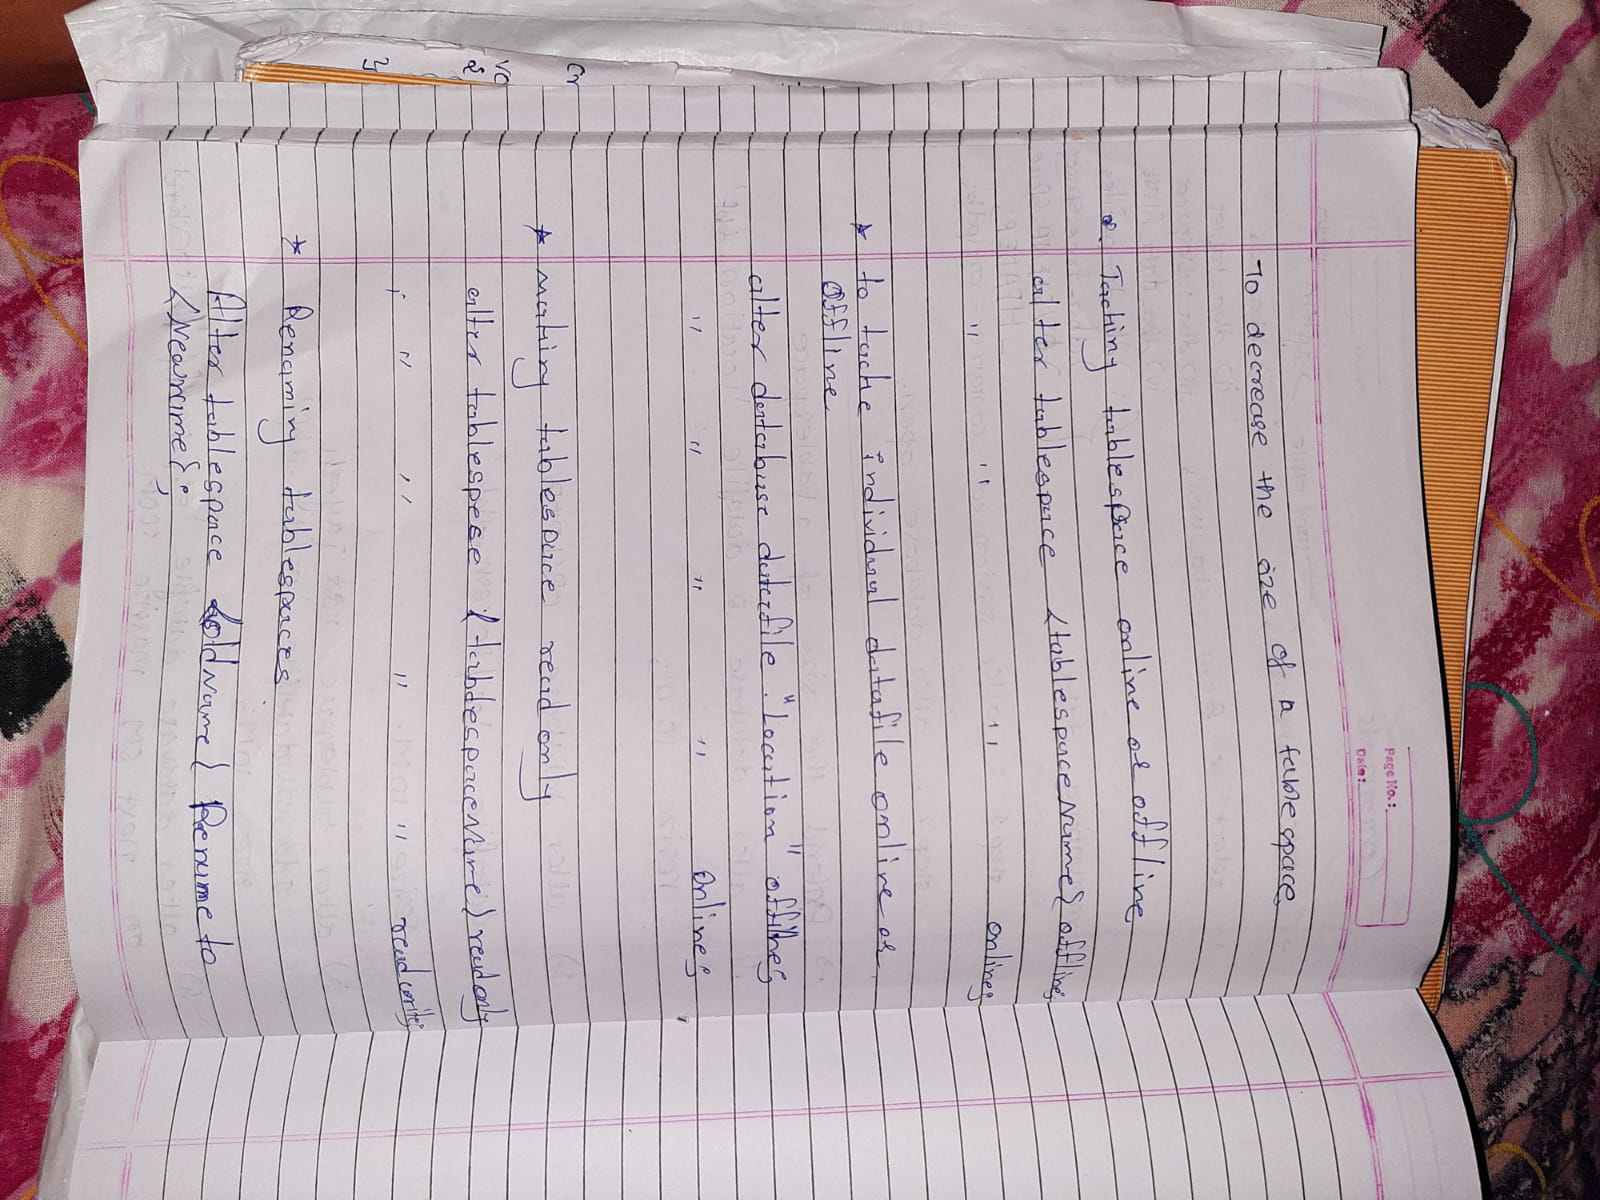 Page No.:
Date:
To decrease the size of a table space
Taching tablespace online or offline
alter tablespace <tablespaceName> offline;
" " " online;
* to tache individual datafile online or
offline
alter database datafile "Location" offline;
" " " " Online;
* making tablespace read only
alter tablespese <tabdespaceName> read only
; " " " " read write;
* Renaming tablespaces
Alter tablespace <oldName> Rename to
<Newname>;
cr
vo
2
y